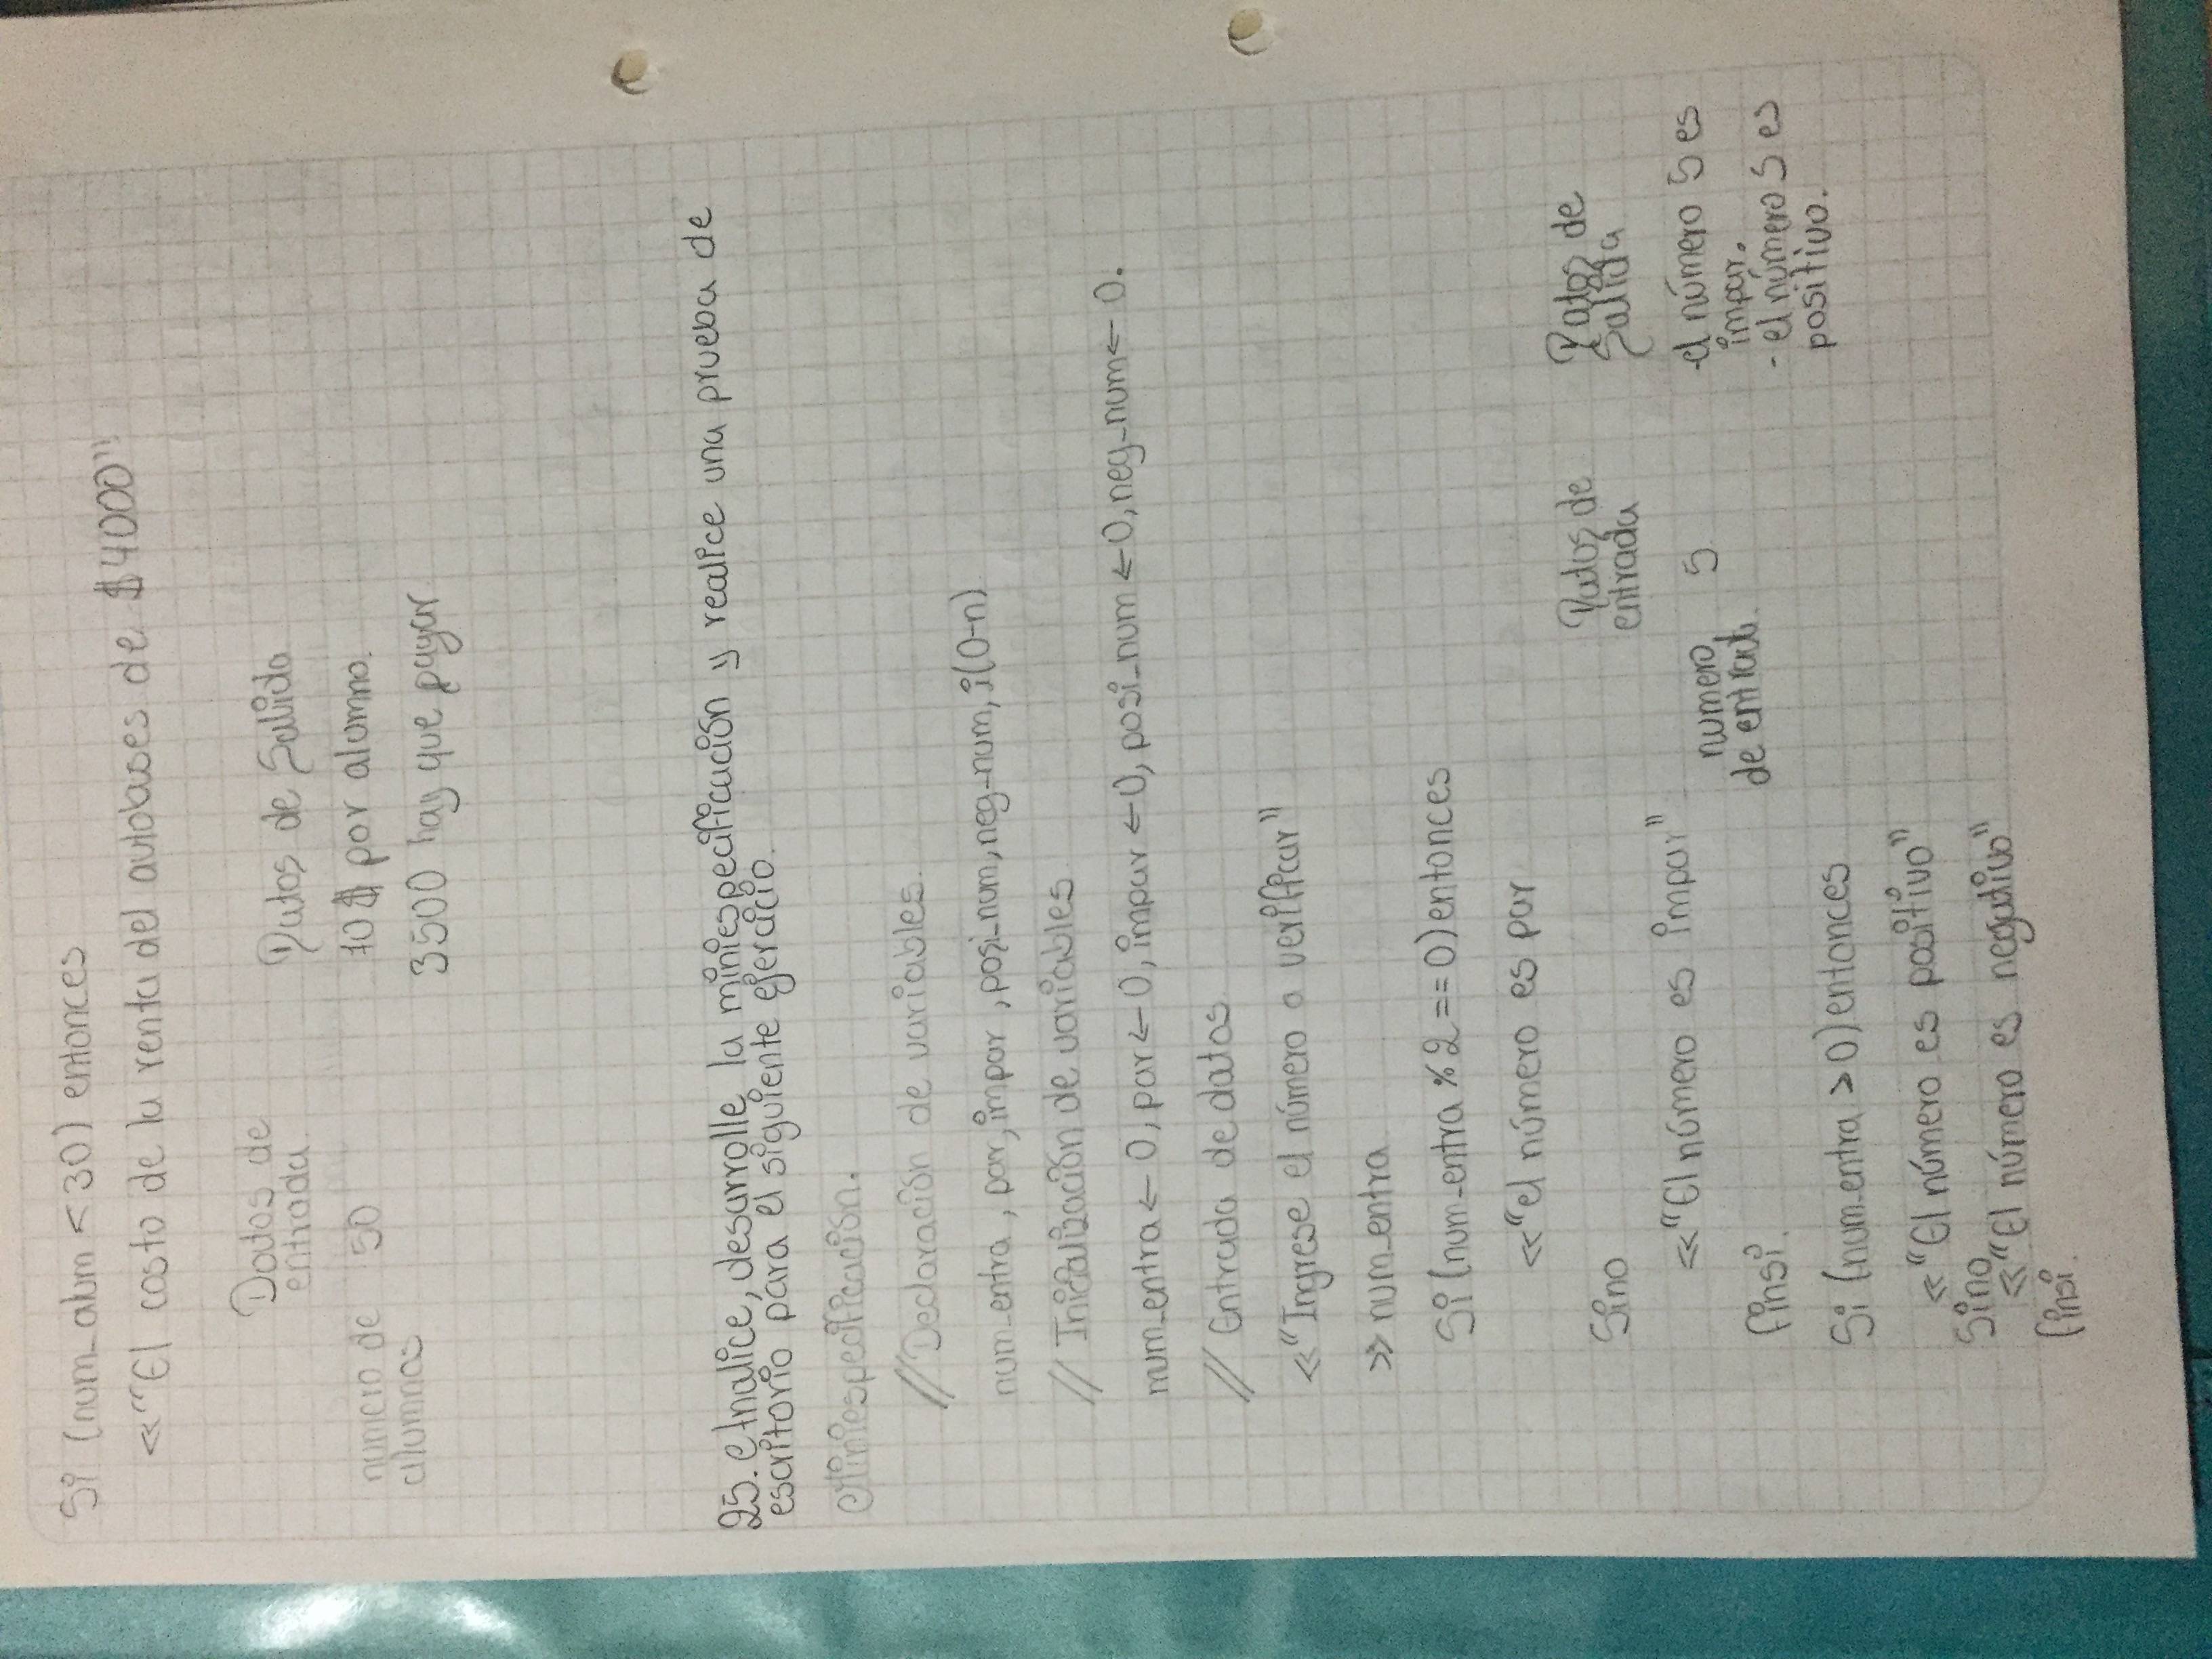 Si (num_alum < 30) entonces
<< "El costo de la renta del autobuses de $4000"
Datos de
entrada
Datos de Salida
numero de
alumnos
50
70$ por alumno.
3500 hay que pagar
25. Analice, desarrolle la miniespecificación y realice una prueba de
escritorio para el siguiente ejercicio.
Miniespecificación.
// Declaración de variables.
num_entra, par, impar, posi_num, neg_num, i(0-n)
// Inicialización de variables
num_entra ← 0, par ← 0, impar ← 0, posi_num ← 0, neg_num ← 0.
// Entrada de datos
<< "Ingrese el número a verificar"
>> num_entra
Si (num_entra % 2 == 0) entonces
<< "el número es par
Sino
<< "El número es impar"
finsi.
Datos de
entrada
Datos de
Salida
numero
de entrada.
5
-el número 5 es
impar.
- el número 5 es
positivo.
Si (num_entra > 0) entonces
<< "El número es positivo"
Sino
<< "El número es negativo"
finsi.